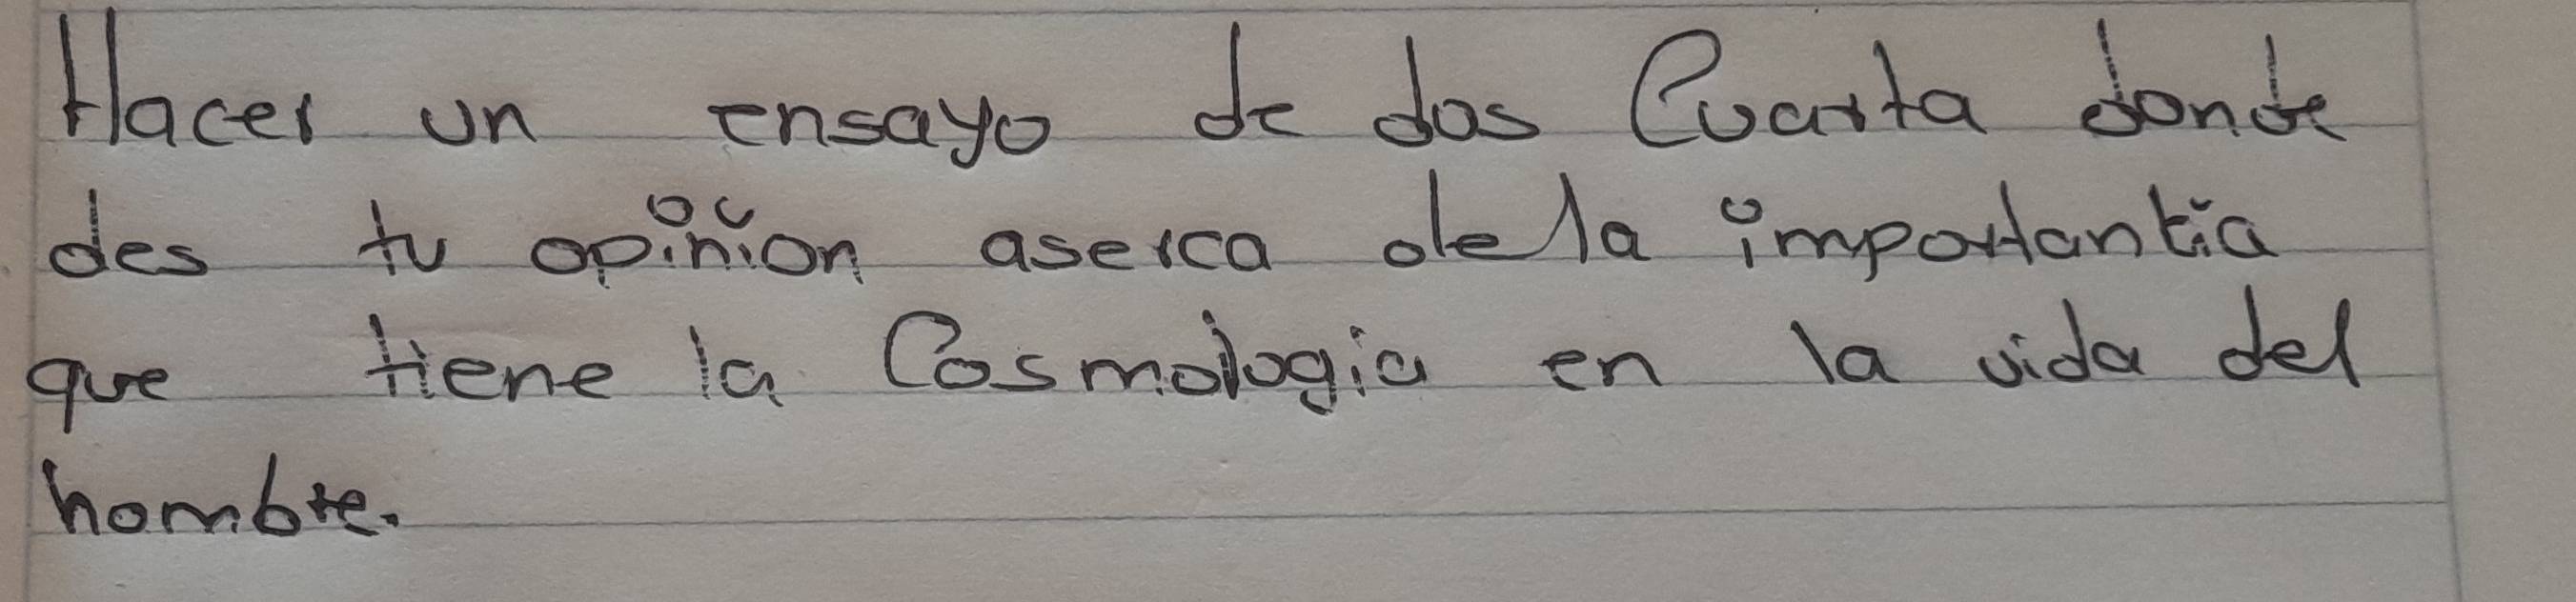 Hacer un ensayo de dos Cuarta donde
des tu opinion aserca de la importantia
que tiene la Cosmologia en la vida del
hombre.